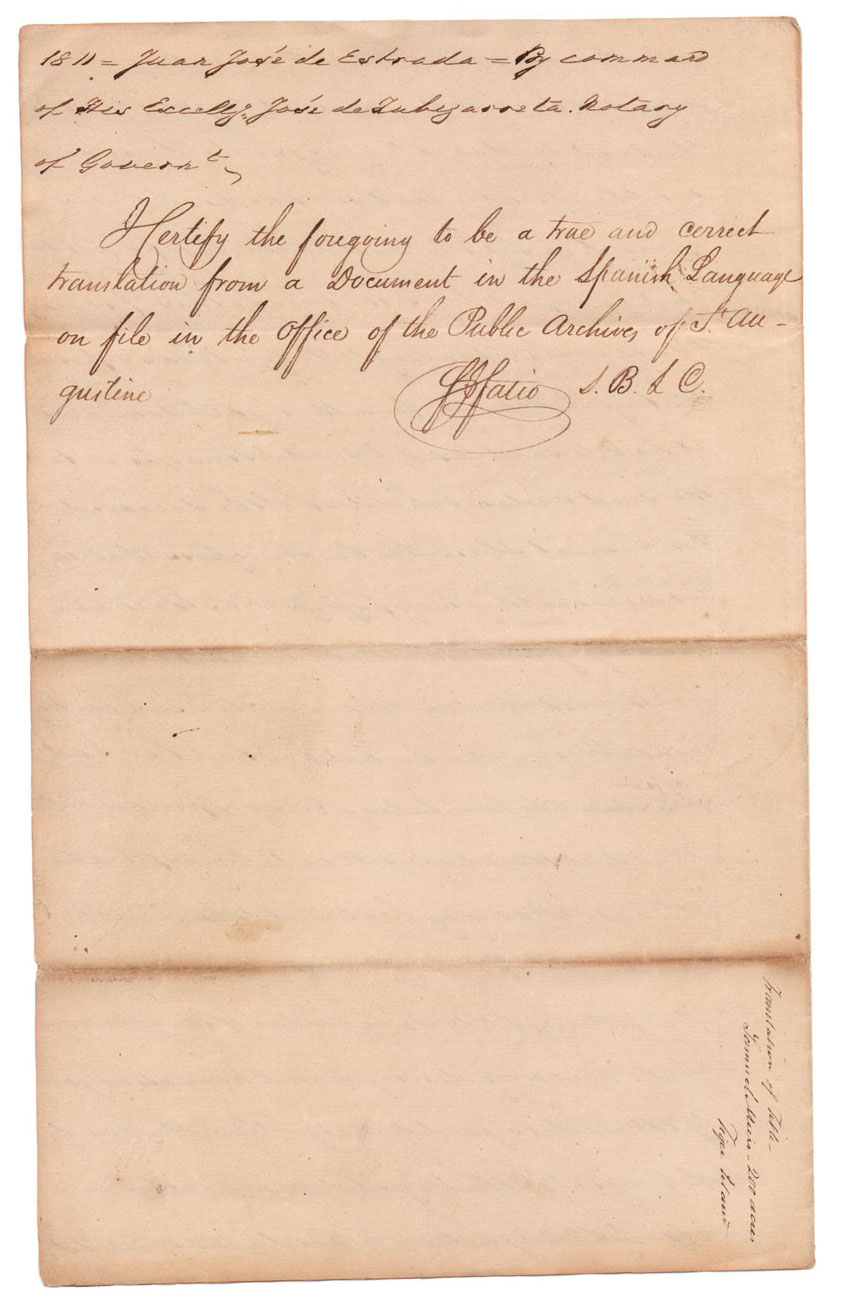 1811 = Juan José de Estrada = By command
of His Excelly. José de Zubizarreta. Notary
of Governt.
I Certify the foregoing to be a true and correct
translation from a Document in the Spanish Language
on file in the Office of the Public Archives of St. Au-
gustine
F J Fatio S. B. L C.
Translation of Title
Samuel Miers - 200 acres
Tiger Island